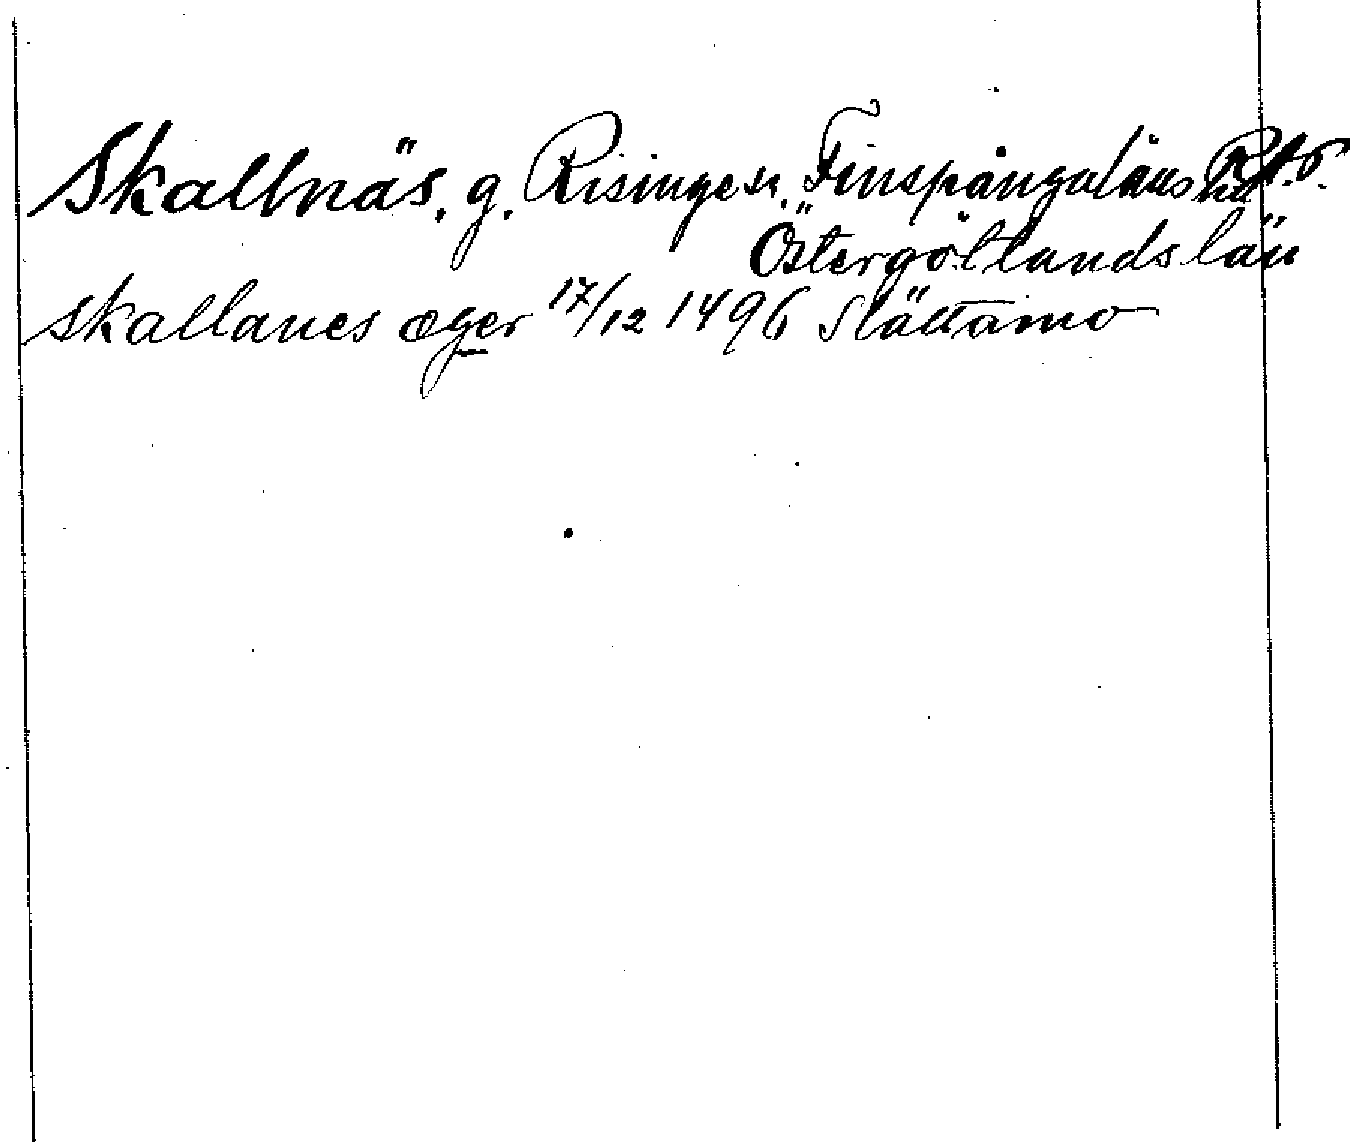 Skallnäs. g. Risinge sn. Finspångaläns hd
Östergötlands län
skallanes æger 17/12 1496 Slättamo